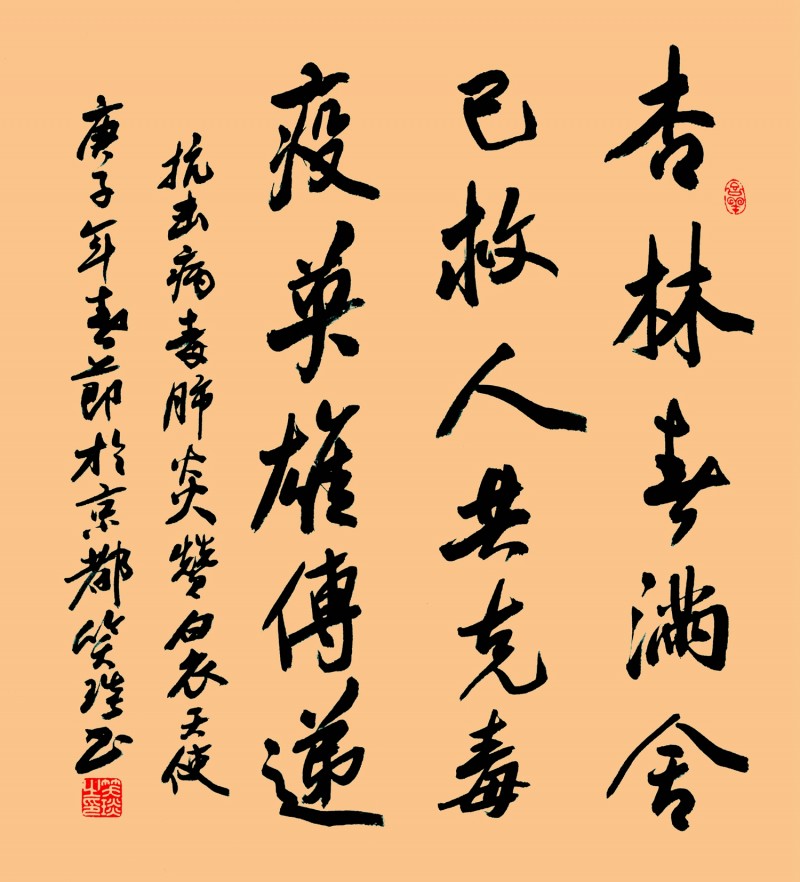 杏林春满舍
己救人共克毒
疫英雄傳递
抗击病毒肺炎赞白衣天使
庚子年春節於京都笑琰书